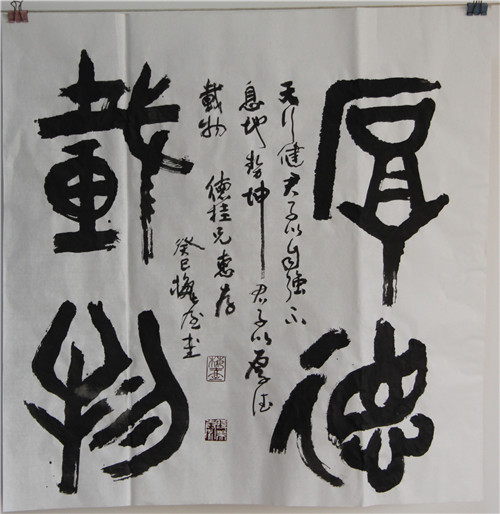 厚德
載物
天行健君子以自強不
息地勢坤君子以厚德
載物 德桂兄惠存
癸巳梅